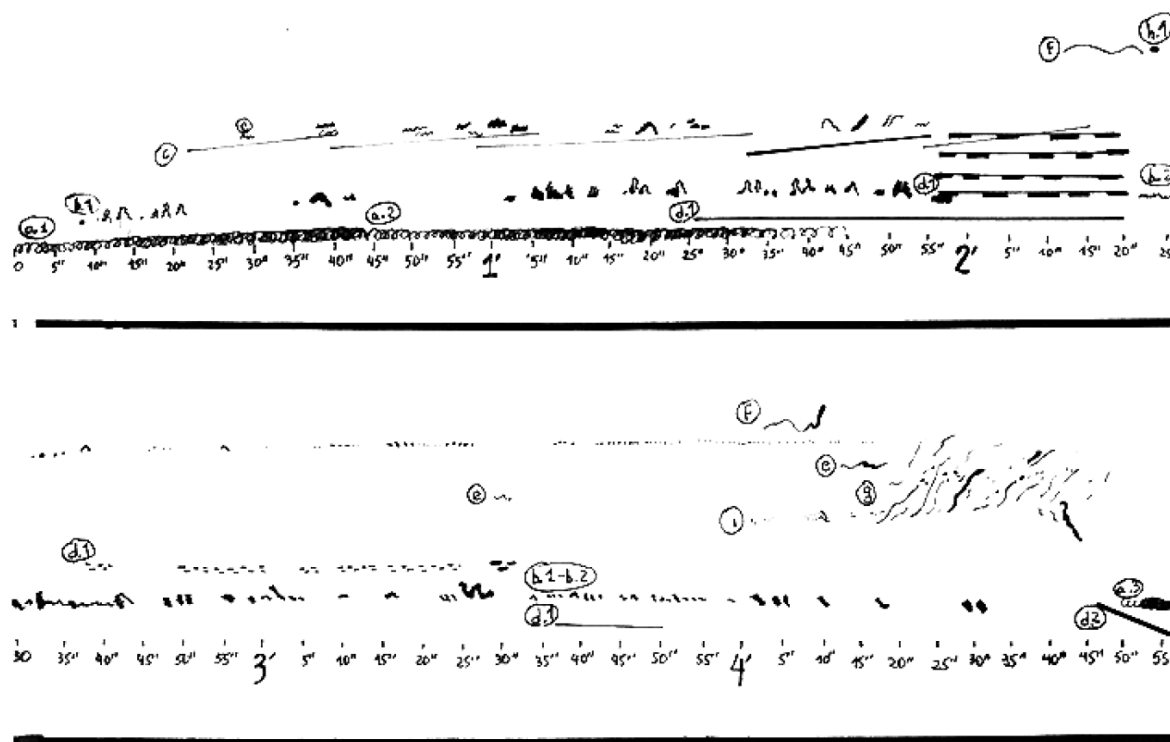 f h.1
e
c
b.1 d.1 b.2
a.1 a.2 d.1
0 5" 10" 15" 20" 25" 30" 35" 40" 45" 50" 55" 1' 5" 10" 15" 20" 25" 30" 35" 40" 45" 50" 55" 2' 5" 10" 15" 20" 25
f
e
e g
i
d.1
b.1-b.2
a.3
d.1 d2
30 35" 40" 45" 50" 55" 3' 5" 10" 15" 20" 25" 30" 35" 40" 45" 50" 55" 4' 5" 10" 15" 20" 25" 30" 35" 40" 45" 50" 55"